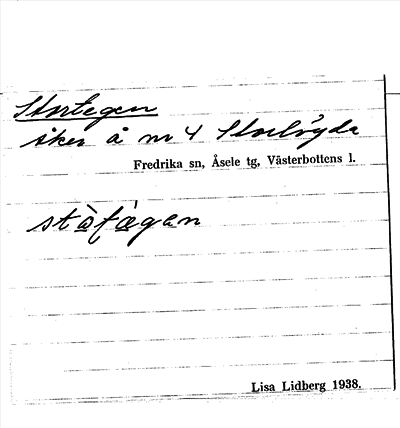 Stortegen
åker å nr 4 Storbygda
Fredrika sn, Åsele tg, Västerbottens l.
Lisa Lidberg 1938.